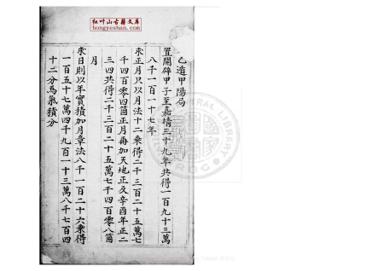 红叶山古籍文库
hongyeshan.com
乙遁甲陽局
置開辟甲子至嘉靖三十九年共得一百九十三萬
八千一百一十七年
求正月只以月法十二乘得二千三百二十五萬七
千四百零四箇正月再加天地正爻辛酉年正二
三四共得二千三百二十五萬七千四百零八箇
月
求日則以年實積加月章法八千一百二十六乘得
一百五十七萬四千九百一十三萬八千七百四
十二分為氣積分